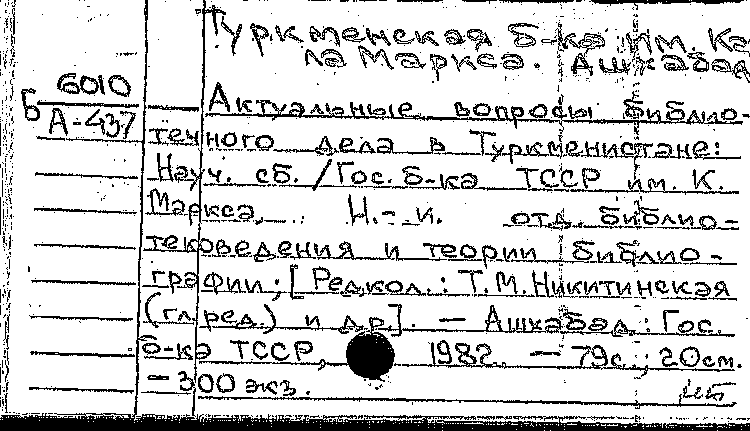 Туркменская б-ка им. Ка
ла Маркса. Ашхабад
Б 6010
А-437
Актуальные вопросы библио-
течного дела в Туркменистане:
Науч. сб. / Гос. б-ка ТССР им. К.
Маркса, Н.-и. отд. библио-
тековедения и теории библио-
графии; [Редкол.: Т.М.Никитинская
(гл.ред.) и др.]. — Ашхабад: Гос.
б-ка ТССР, 1982. — 79с.; 20см.
— 300 экз.